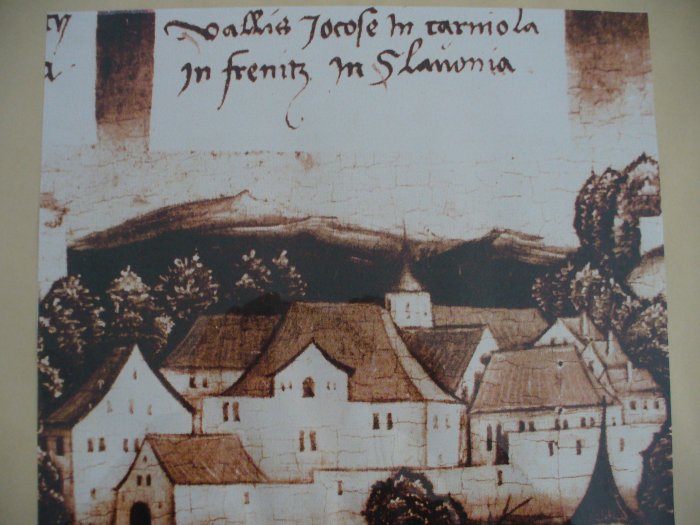 Vallis Jocose In carniola
in frenitz in Slauonia